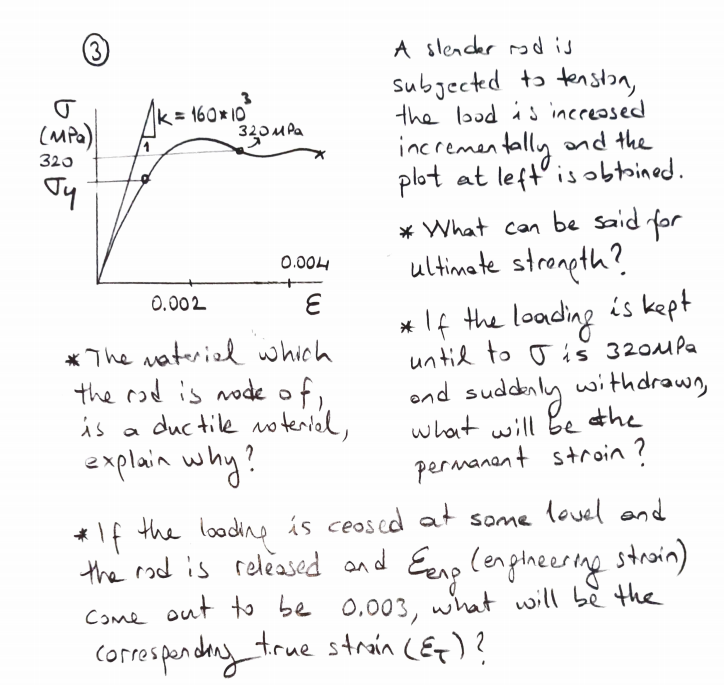 3
A slender rod is
subjected to tension,
the load is increased
incrementally and the
plot at left is obtained.
σ
(MPa)
320
σy
k = 160*10³
1
320 MPa
0.002
0.004
ε
* What can be said for
ultimate strength?
* If the loading is kept
until to σ is 320MPa
and suddenly withdrawn,
what will be the
permanent strain?
* The material which
the rod is made of,
is a ductile material,
explain why?
* If the loading is ceased at some level and
the rod is released and εeng (engineering strain)
come out to be 0.003, what will be the
corresponding true strain (εT)?